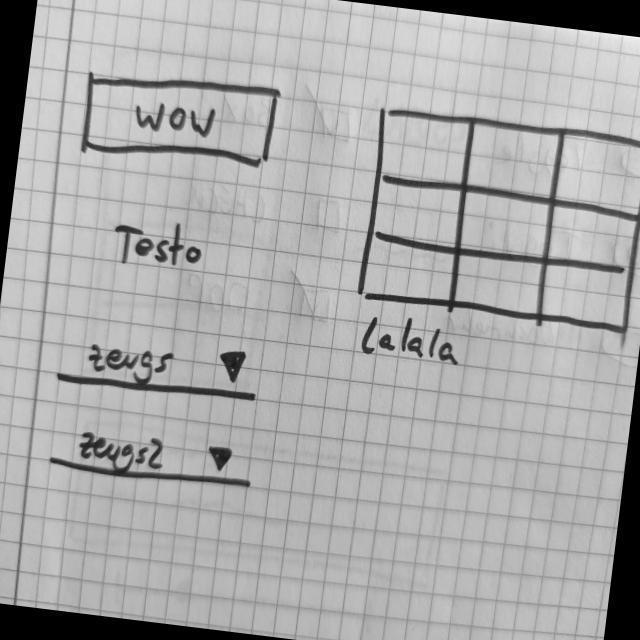 wow
Testo
zeugs
zeugs2
Lalala